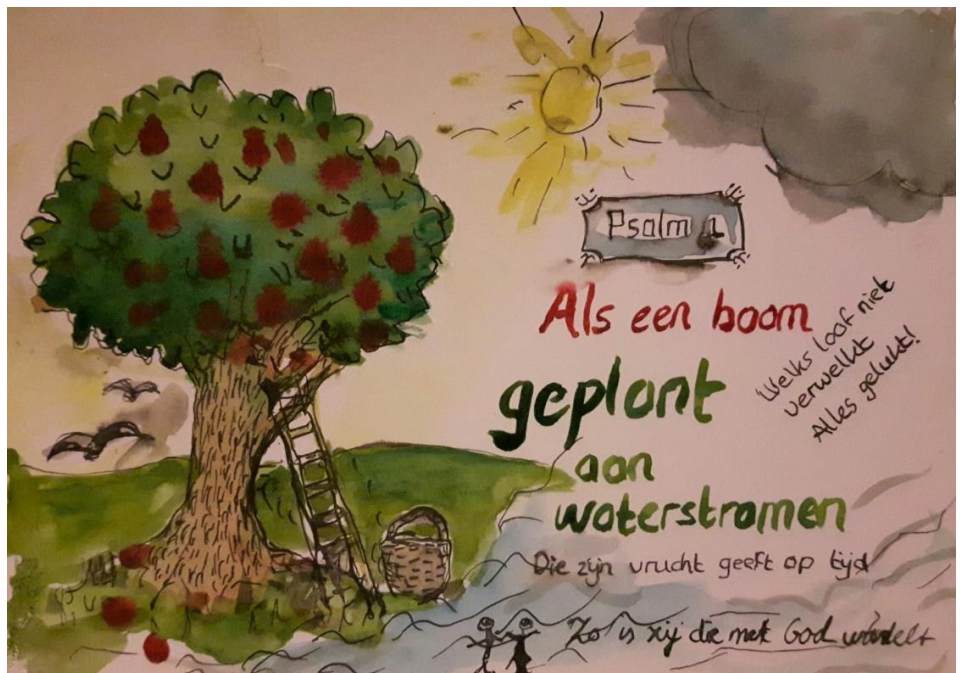 Psalm 1
Als een boom
geplant
aan
waterstromen
Welks loof niet
verwelkt
Alles gelukt!
Die zijn vrucht geeft op tijd
Zo is hij die met God wandelt